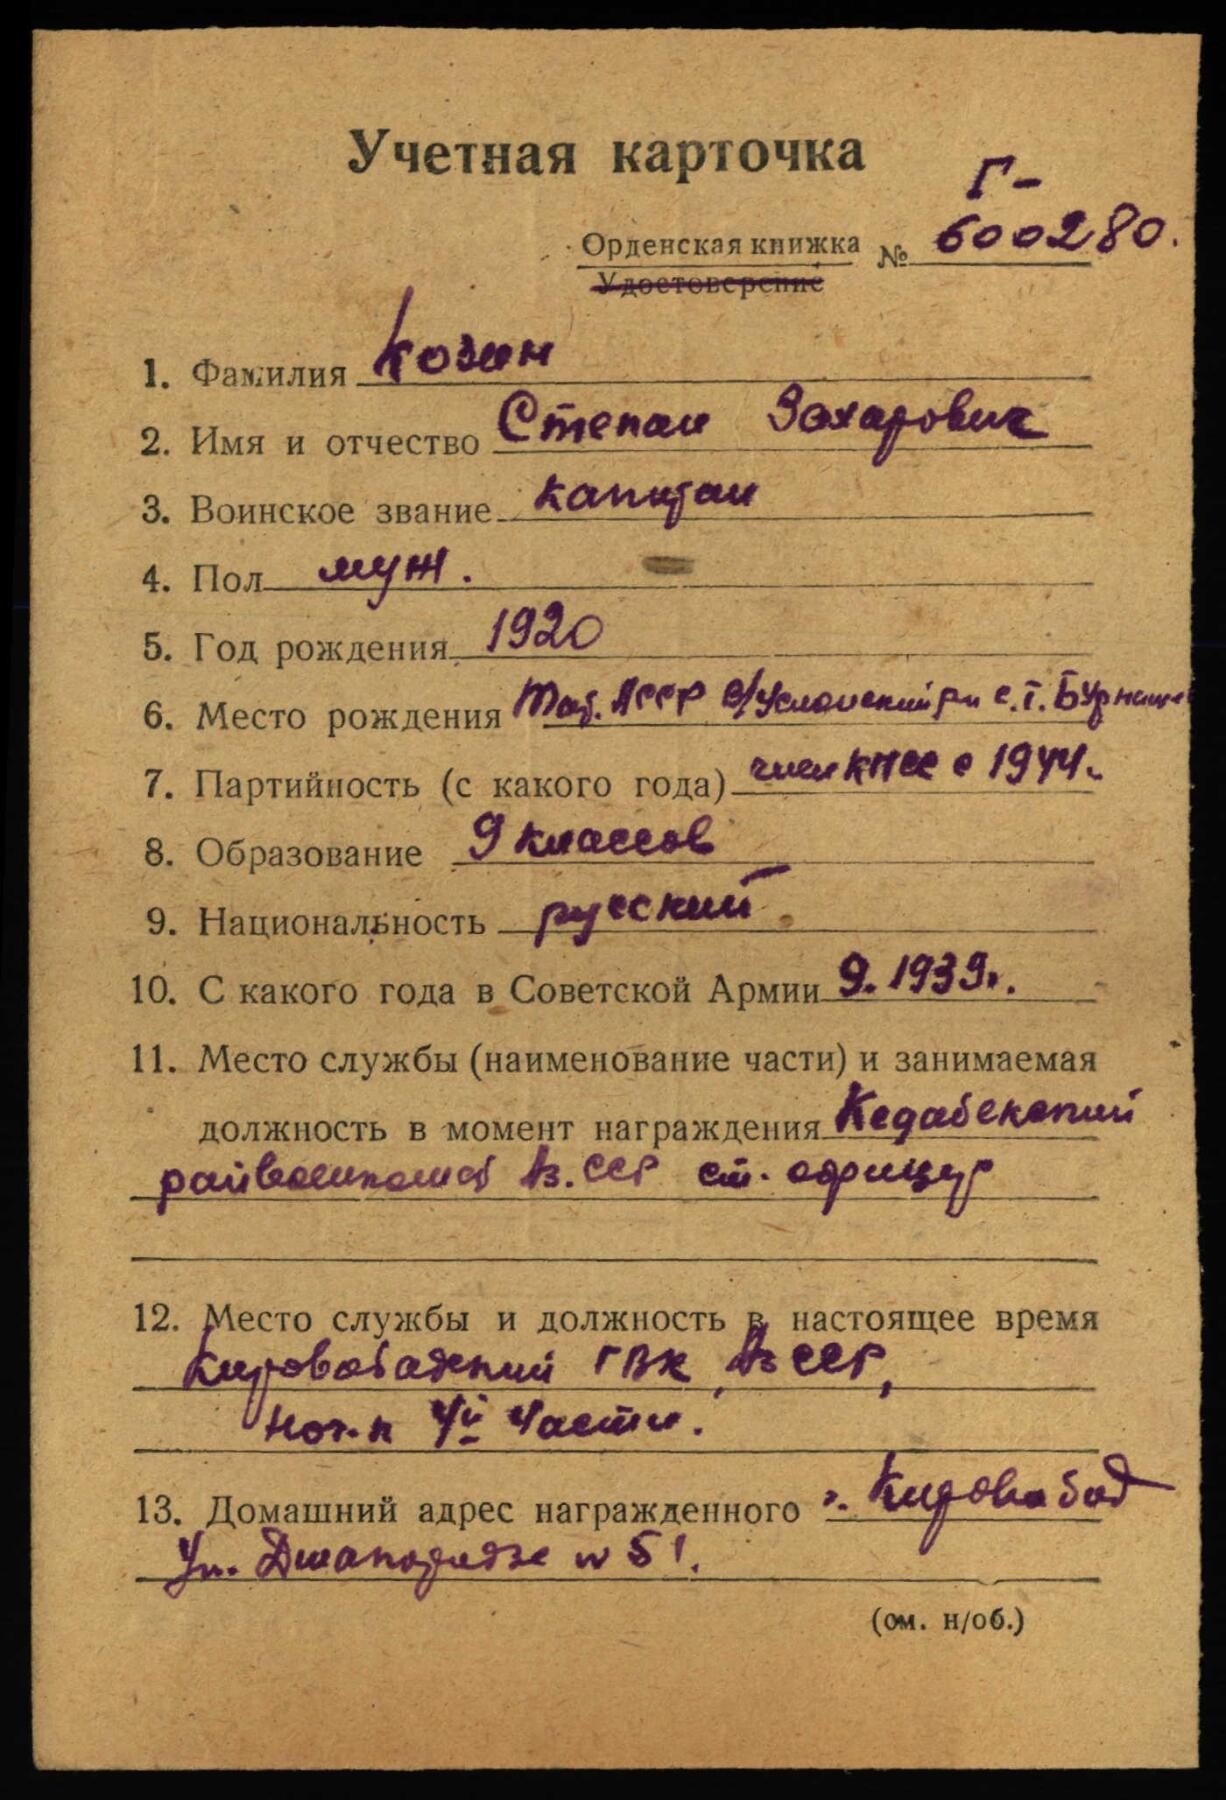 Учетная карточка
Г-
Орденская книжка № 600280.
Удостоверение
1. Фамилия Козин
2. Имя и отчество Степан Захарович
3. Воинское звание капитан
4. Пол муж.
5. Год рождения 1920
6. Место рождения Тат. АССР В/Услонский р-н с. Т. Бурнаше
7. Партийность (с какого года) член КПСС с 1944г.
8. Образование 9 классов
9. Национальность русский
10. С какого года в Советской Армии 9. 1939г.
11. Место службы (наименование части) и занимаемая
должность в момент награждения Кедабекский
райвоенкомат Аз. ССР ст. офицер
12. Место службы и должность в настоящее время
Кировабадский ГВК Аз ССР,
нач-к 4й части.
13. Домашний адрес награжденного г. Кировабад
Ул. Джапаридзе № 51.
(см. н/об.)